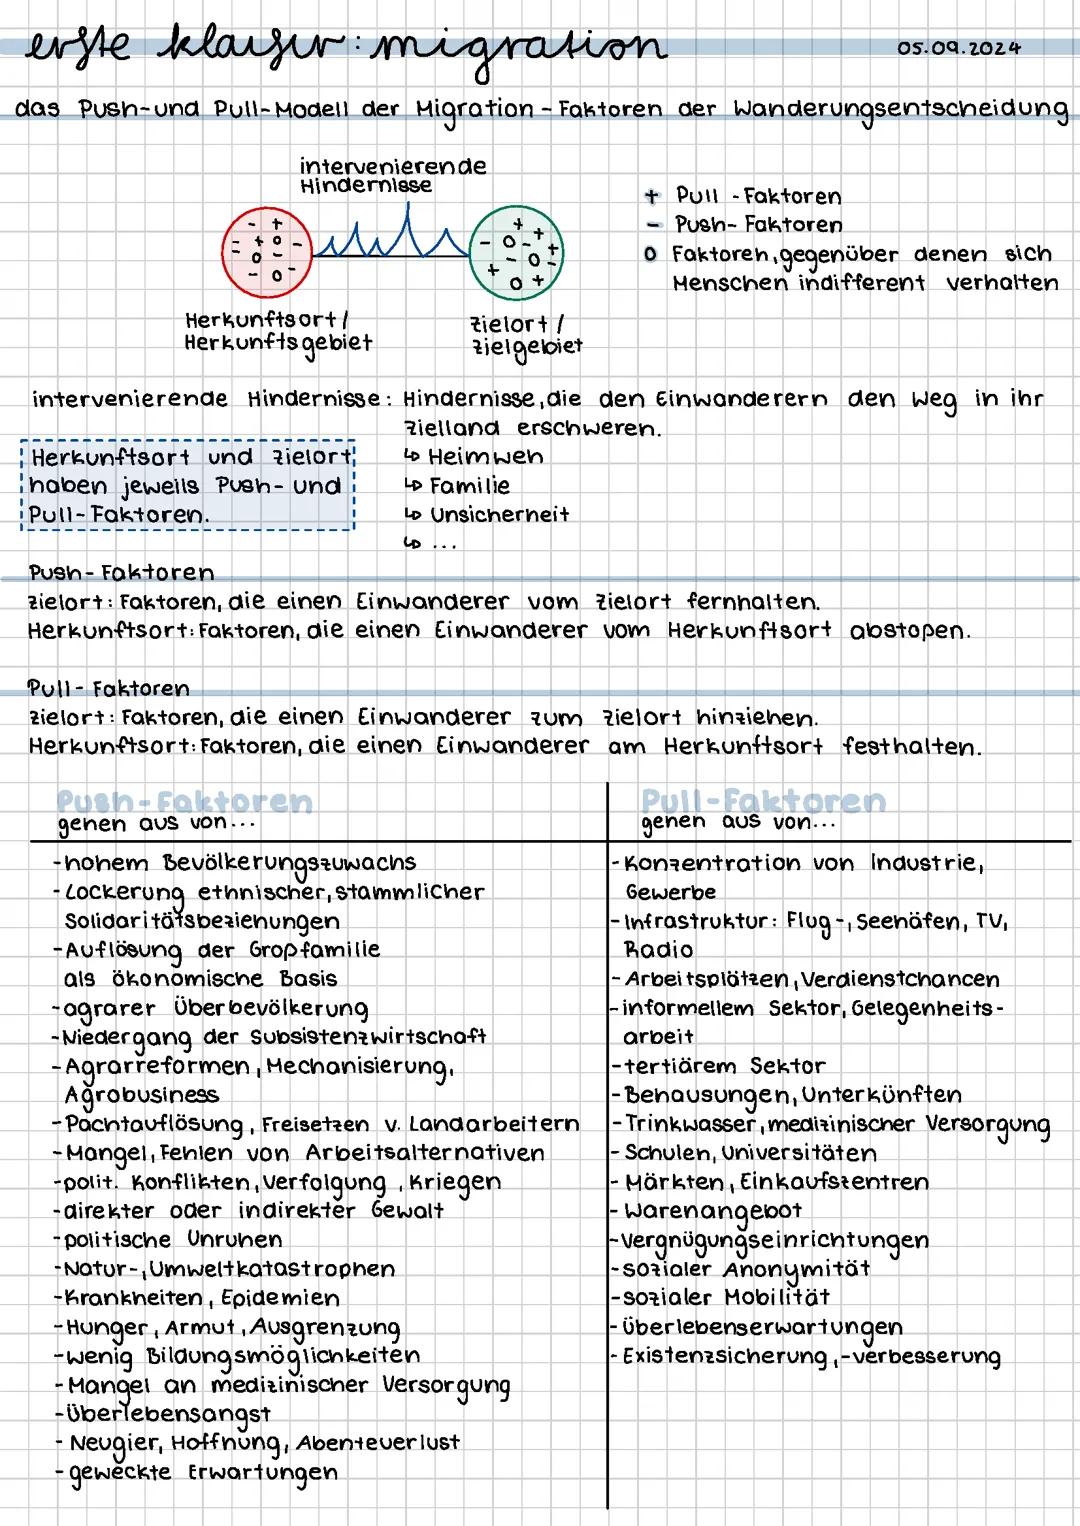 erste klausur: migration
05.09.2024
das Push-und Pull-Modell der Migration - Faktoren der Wanderungsentscheidung
intervenierende
Hindernisse
+ Pull - Faktoren
- Push- Faktoren
o Faktoren, gegenüber denen sich
Menschen indifferent verhalten
Herkunftsort /
Herkunftsgebiet
Zielort /
Zielgebiet
intervenierende Hindernisse: Hindernisse, die den Einwanderern den Weg in ihr
Zielland erschweren.
↳ Heimweh
↳ Familie
↳ Unsicherheit
↳ ...
Herkunftsort und Zielort
haben jeweils Push- und
Pull-Faktoren.
Push- Faktoren
Zielort: Faktoren, die einen Einwanderer vom Zielort fernhalten.
Herkunftsort: Faktoren, die einen Einwanderer vom Herkunftsort abstoßen.
Pull- Faktoren
Zielort: Faktoren, die einen Einwanderer zum Zielort hinziehen.
Herkunftsort: Faktoren, die einen Einwanderer am Herkunftsort festhalten.
Push-Faktoren
gehen aus von...
-hohem Bevölkerungszuwachs
-Lockerung ethnischer, stammlicher
Solidaritätsbeziehungen
-Auflösung der Großfamilie
als ökonomische Basis
-agrarer Überbevölkerung
-Niedergang der Subsistenzwirtschaft
-Agrarreformen, Mechanisierung,
Agrobusiness
-Pachtauflösung, Freisetzen v. Landarbeitern
-Mangel, Fehlen von Arbeitsalternativen
-polit. Konflikten, Verfolgung, Kriegen
-direkter oder indirekter Gewalt
-politische Unruhen
-Natur-, Umweltkatastrophen
-Krankheiten, Epidemien
-Hunger, Armut, Ausgrenzung
-wenig Bildungsmöglichkeiten
-Mangel an medizinischer Versorgung
-Überlebensangst
- Neugier, Hoffnung, Abenteuerlust
- geweckte Erwartungen
Pull-Faktoren
gehen aus von...
-Konzentration von Industrie,
Gewerbe
-Infrastruktur: Flug-, Seehäfen, TV,
Radio
-Arbeitsplätzen, Verdienstchancen
-informellem Sektor, Gelegenheits-
arbeit
-tertiärem Sektor
-Behausungen, Unterkünften
-Trinkwasser, medizinischer Versorgung
- Schulen, Universitäten
- Märkten, Einkaufszentren
- Warenangebot
-Vergnügungseinrichtungen
-sozialer Anonymität
-sozialer Mobilität
-Überlebenserwartungen
- Existenzsicherung, -verbesserung